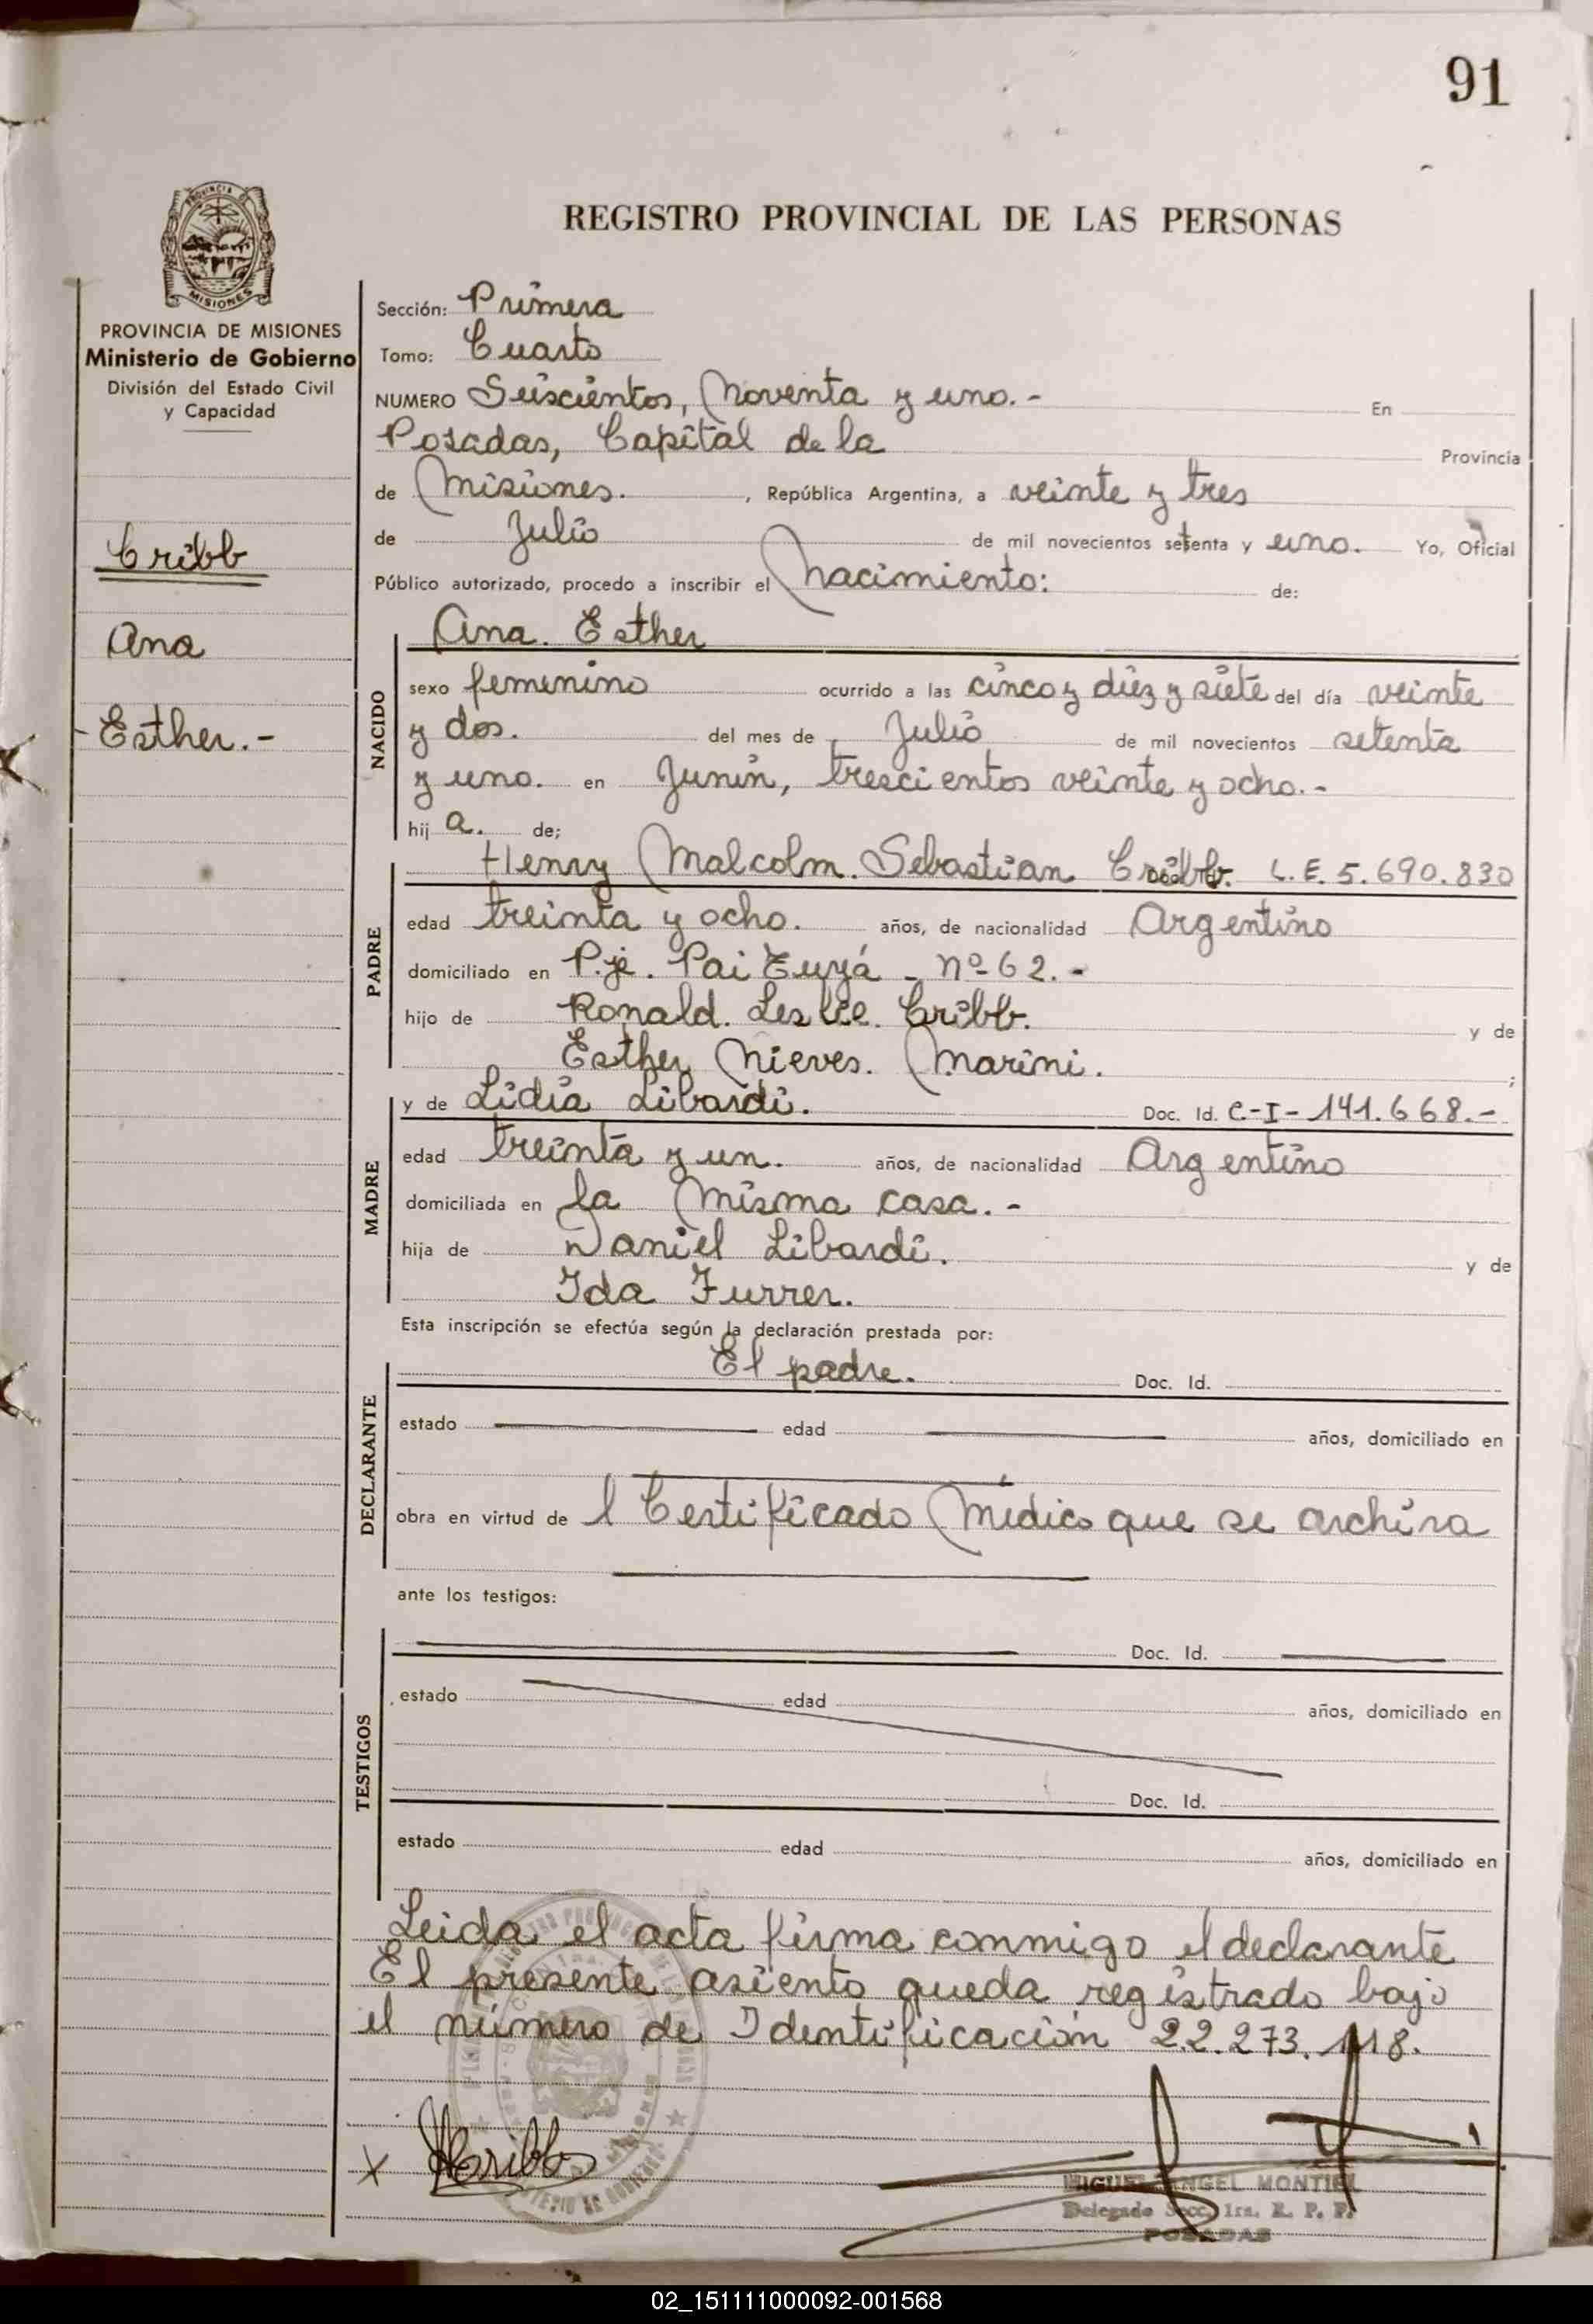 91
REGISTRO PROVINCIAL DE LAS PERSONAS
PROVINCIA
MISIONES
PROVINCIA DE MISIONES
Ministerio de Gobierno
División del Estado Civil
y Capacidad
Cribb
Ana
Esther.-
Sección: Primera
Tomo: Cuarto
NUMERO Seiscientos, Noventa y uno.- En
Posadas, Capital de la Provincia
de Misiones. , República Argentina, a veinte y tres
de Julio de mil novecientos setenta y uno. Yo, Oficial
Público autorizado, procedo a inscribir el Nacimiento: de:
Ana. Esther
NACIDO
sexo femenino ocurrido a las cinco y diez y siete del día veinte
y dos. del mes de Julio de mil novecientos setenta
y uno. en Junín, trescientos veinte y ocho.-
hij a. de;
Henry Malcolm. Sebastian Cribb. L.E. 5.690.830
PADRE
edad treinta y ocho. años, de nacionalidad Argentino
domiciliado en P.je. Pai Zuyá - nº 62.-
hijo de Ronald. Leslie. Cribb. y de
Esther Nieves. Marini. ;
y de Lidia Libardi. Doc. Id. C-I- 141.668.-
MADRE
edad treinta y un. años, de nacionalidad Argentino
domiciliada en la misma casa.-
hija de Daniel Libardi. y de
Ida Furrer.
Esta inscripción se efectúa según la declaración prestada por:
El padre. Doc. Id.
DECLARANTE
estado edad años, domiciliado en
obra en virtud de l Certificado Medico que se archiva
ante los testigos:
Doc. Id.
TESTIGOS
estado edad años, domiciliado en
Doc. Id.
estado edad años, domiciliado en
Leida el acta firma conmigo el declarante
El presente asiento queda registrado bajo
el número de Identificación 22.273.118.
x HCribb
MIGUEL ANGEL MONTIEL
Delegado Secc. 1ra. R. P. P.
POSADAS
02_151111000092-001568